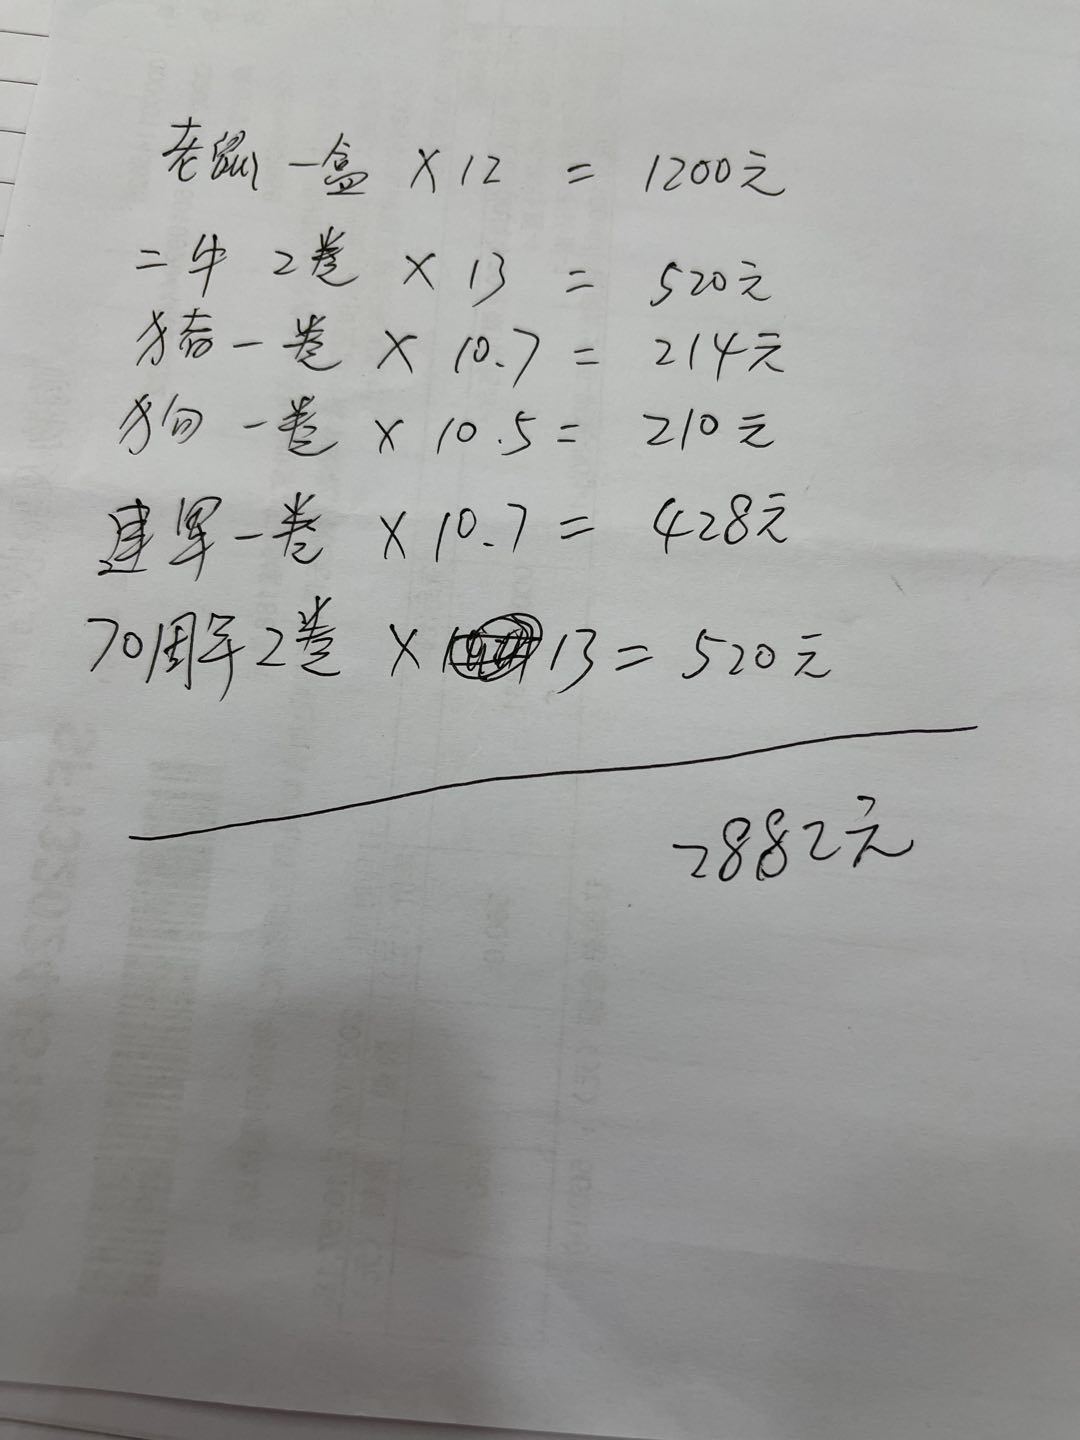 老鼠一盒 × 12 = 1200元
二牛 2卷 × 13 = 520元
猪一卷 × 10.7 = 214元
狗一卷 × 10.5 = 210元
建军一卷 × 10.7 = 428元
70周年2卷 × 13 = 520元
2882元